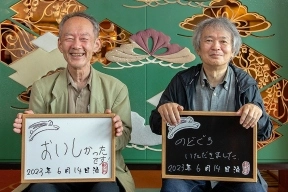 おいしかった
です
2023年6月14日泊
のどぐろ
いただきました
2023年6月14日泊